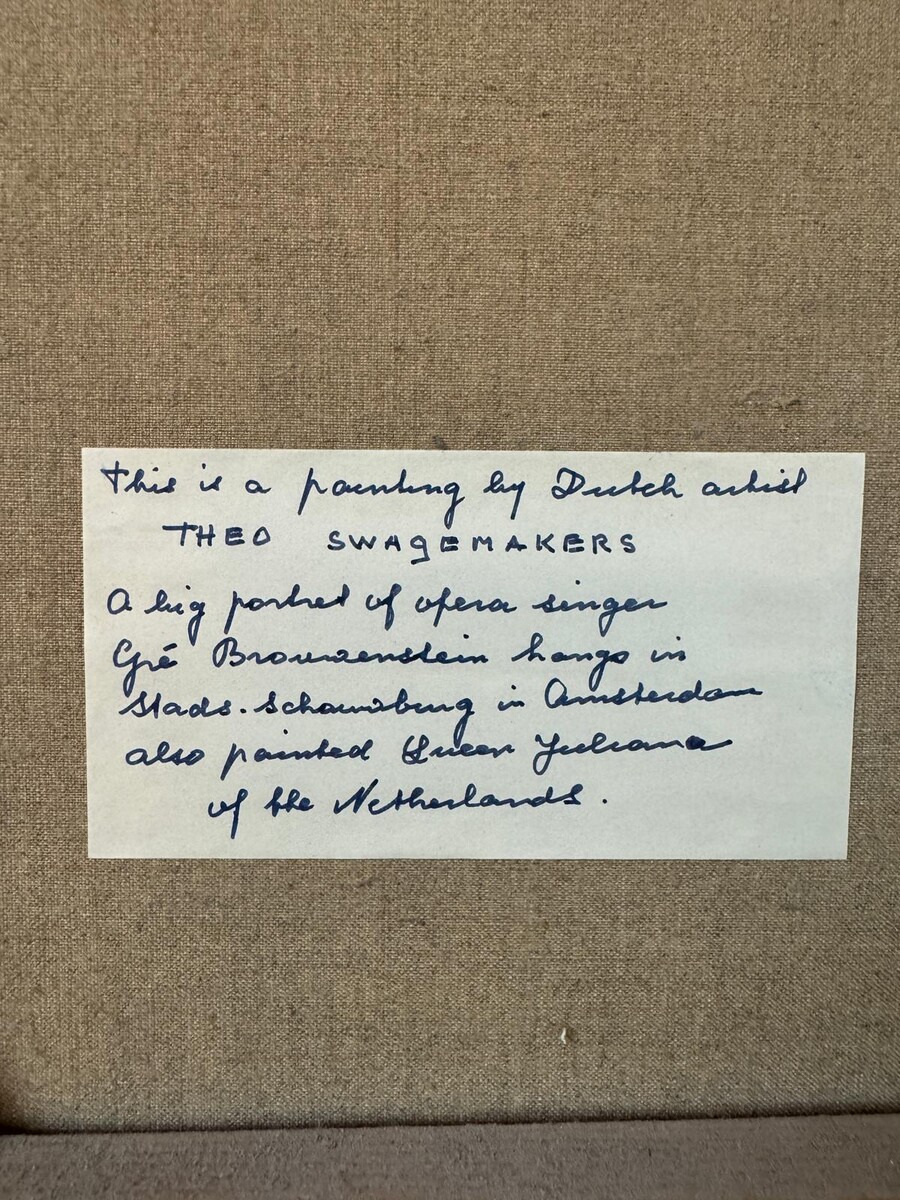 This is a painting by Dutch artist
THEO SWAGEMAKERS
A big portret of opera singer
Gré Brouwenstein hangs in
Stads-Schouwburg in Amsterdam
also painted Queen Juliana
of the Netherlands.